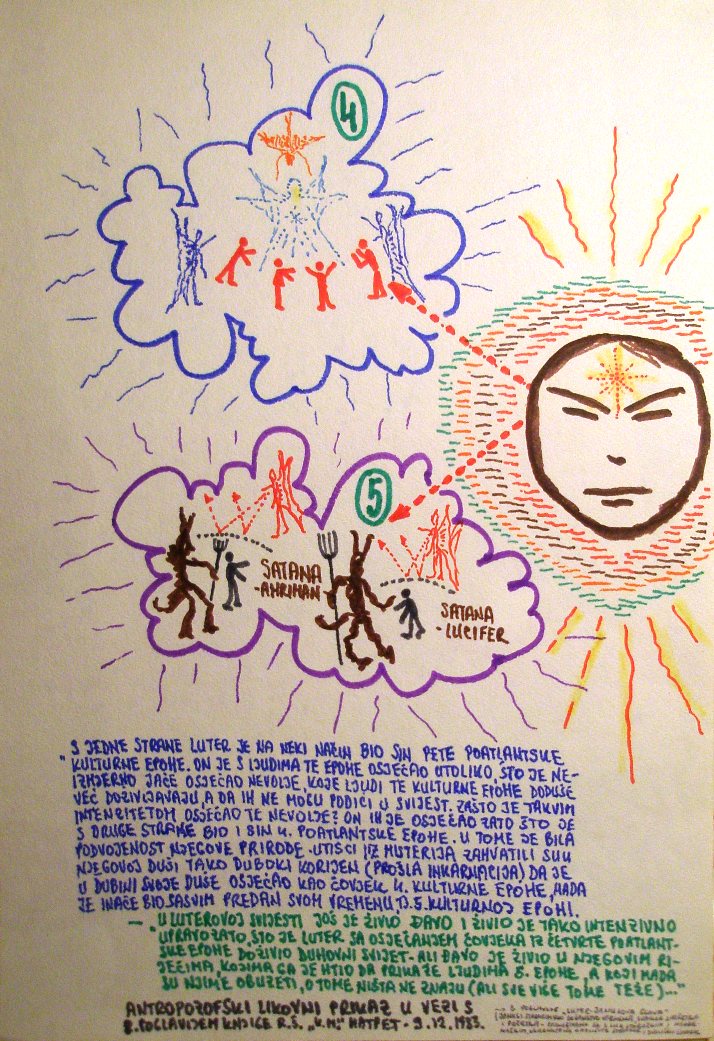 4
5
SATANA
-AHRIMAN
SATANA
-LUCIFER
S JEDNE STRANE LUTER JE NA NEKI NAČIN BIO SIN PETE POATLANTSKE
"KULTURNE EPOHE. ON JE S LJUDIMA TE EPOHE OSJEĆAO UTOLIKO, ŠTO JE NE-
IZMJERNO JAČE OSJEĆAO NEVOLJE, KOJE LJUDI TE KULTURNE EPOHE DODUŠE
VEĆ DOŽIVLJAVAJU, A DA IH NE MOGU PODIĆI U SVIJEST. ZAŠTO JE TAKVIM
INTENZITETOM OSJEĆAO TE NEVOLJE? ON IH JE OSJEĆAO ZATO ŠTO JE
S DRUGE STRANE BIO I SIN 4. POATLANTSKE EPOHE. U TOME JE BILA
PODVOJENOST NJEGOVE PRIRODE. UTISCI IZ MISTERIJA ZAHVATILI SU U
NJEGOVOJ DUŠI TAKO DUBOKI KORIJEN (PROŠLA INKARNACIJA) DA JE
U DUBINI SVOJE DUŠE OSJEĆAO KAO ČOVJEK 4. KULTURNE EPOHE, MADA
JE INAČE BIO SASVIM PREDAN SVOM VREMENU, TJ. 5. KULTURNOJ EPOHI.
— "U LUTEROVOJ SVIJESTI JOŠ JE ŽIVIO ĐAVO I ŽIVIO JE TAKO INTENZIVNO
UPRAVO ZATO, ŠTO JE LUTER SA OSJEĆANJEM ČOVJEKA IZ ČETVRTE POATLANT-
SKE EPOHE DOŽIVIO DUHOVNI SVIJET. ALI ĐAVO JE ŽIVIO U NJEGOVIM RI-
JEČIMA, KOJIMA GA JE HTIO DA PRIKAŽE LJUDIMA 5. EPOHE, A KOJI MADA
SU NJIME OBUZETI, O TOME NIŠTA NE ZNAJU (ALI SVE VIŠE TOME TEŽE)..."
ANTROPOZOFSKI LIKOVNI PRIKAZ U VEZI S
8. POGLAVLJEM KNJIGE R.Š. "K.M." HATPET - 9.12.1983.